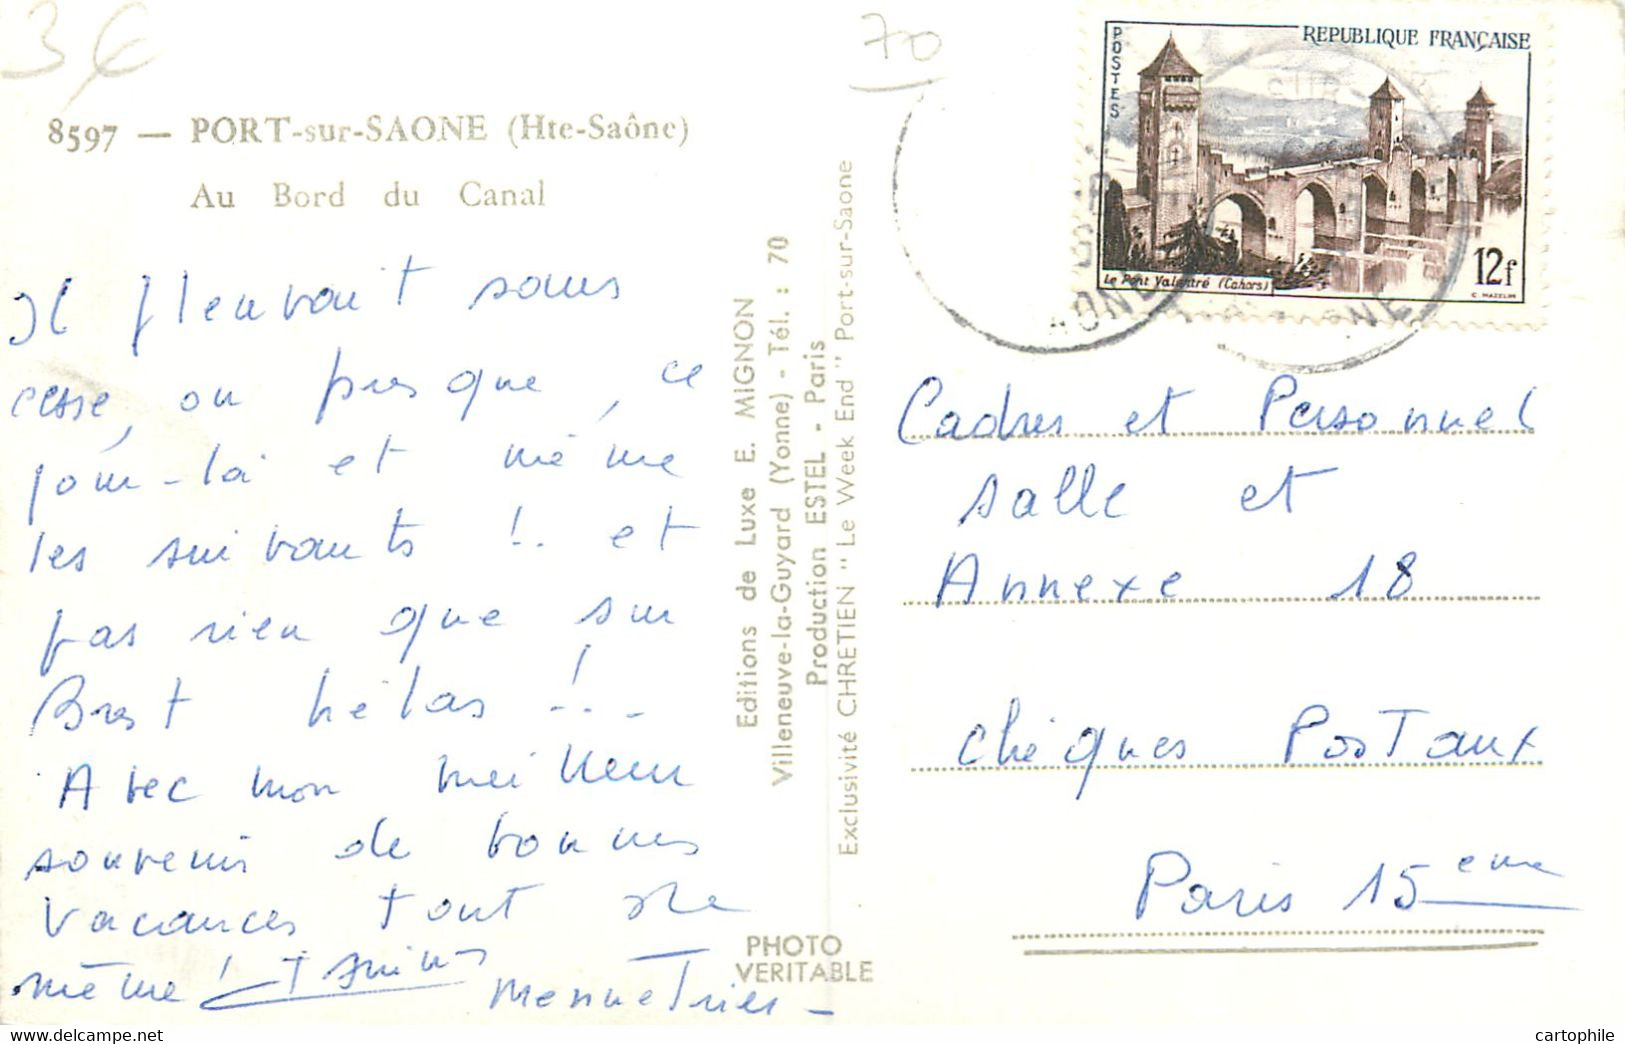 3€
70
8597 — PORT-sur-SAONE (Hte-Saône)
Au Bord du Canal
Il pleuvait sans
cesse, ou presque, ce
jour-là et même
les suivants !.. et
pas rien que sur
Brest hélas !...
Avec mon meilleur
souvenir de bonnes
vacances tout de
même !
Mennetrier
Editions de Luxe E. MIGNON
Villeneuve-la-Guyard (Yonne) - Tél. : 70
Production ESTEL - Paris
Exclusivité CHRETIEN " Le Week End " Port-sur-Saone
PHOTO
VERITABLE
POSTES
REPUBLIQUE FRANÇAISE
Le Pont Valentré (Cahors)
12f
C. MAZELIN
SUR
AONE
Cadres et Personnel
salle et
Annexe 18
Chèques Postaux
Paris 15eme
cartophile.com